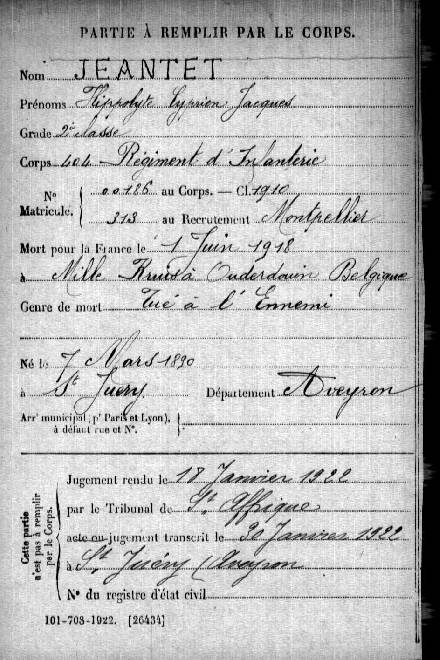 PARTIE À REMPLIR PAR LE CORPS.
Nom JEANTET
Prénoms Hippolyte Cyprien Jacques
Grade 2e classe
Corps 404 Régiment d'Infanterie
N° Matricule. 00186 au Corps. — Cl. 1910
313 au Recrutement Montpellier
Mort pour la France le 1 Juin 1918
à Mille Kruis à Ouderdouin Belgique
Genre de mort Tué à l'Ennemi
Né le 7 Mars 1890
à St Juéry Département Aveyron
Arrt municipal (pr Paris et Lyon),
à défaut rue et N°.
Cette partie n'est pas à remplir par le Corps.
Jugement rendu le 18 Janvier 1922
par le Tribunal de St Affrique
acte ou jugement transcrit le 20 Janvier 1922
à St Juéry (Aveyron
N° du registre d'état civil
101-708-1922. [26434]